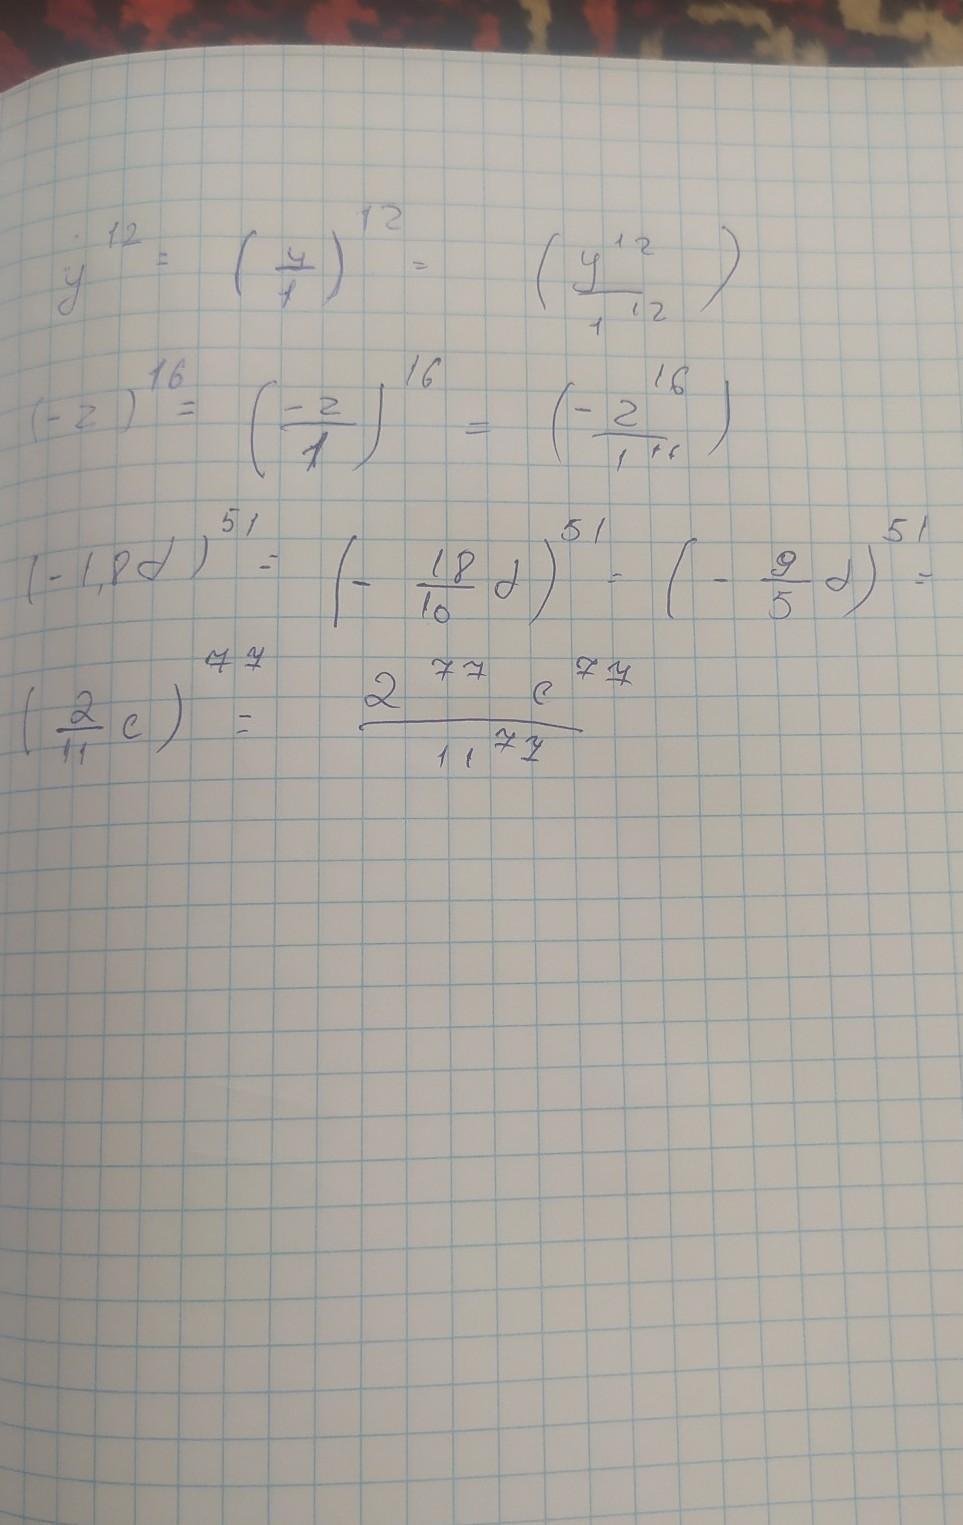 y^12 = (y/1)^12 = (y^12/1^12)
(-z)^16 = (-z/1)^16 = (-z^16/1^16)
(-1,8d)^51 = (-18/10 d)^51 = (-9/5 d)^51 =
(2/11 c)^77 = 2^77 c^77/11^77